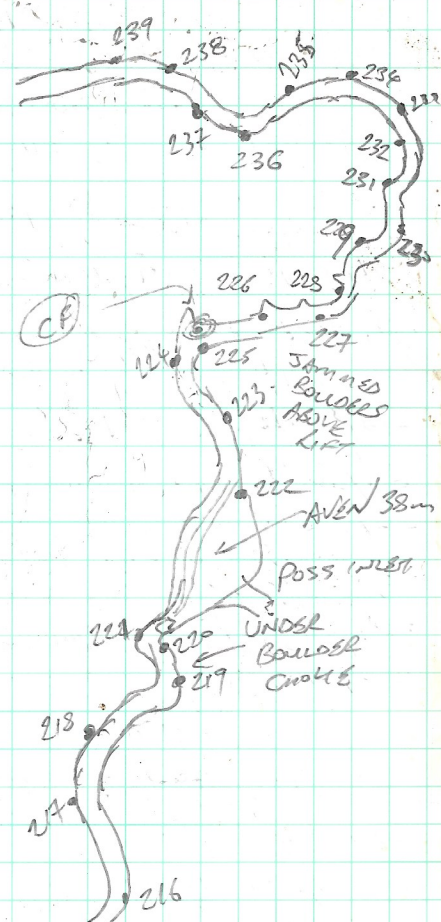 239
238
235
234
233
237
236
232
231
229
230
226
228
CF
227
224
225
JAMMED
BOULDERS
ABOVE
LIFT
223
222
AVEN 38m
POSS INLET
221
220
UNDER
BOULDER
CHOKE
219
218
217
216